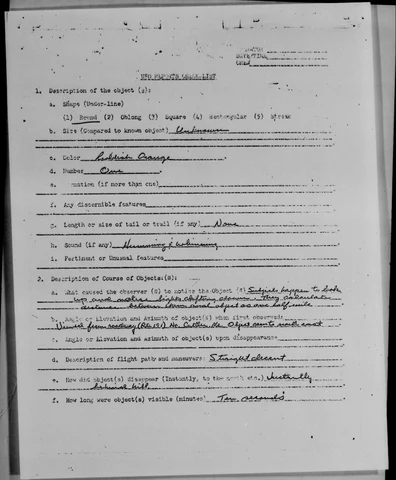 UFO REPORTS CHECK LIST
1. Description of the object (s):
a. Shape (Under-line)
(1) Round (2) Oblong (3) Square (4) Rectangular (5)
b. Size (Compared to known object) Unknown
c. Color Reddish Orange
d. Number One
e. Formation (if more than one)
f. Any discernible features
g. Length or size of tail or trail (if any) None
h. Sound (if any) Humming &
i. Pertinent or Unusual features
2. Description of Course of Objects:(s)
a. What caused the observer (s) to notice the Object (s) Subjects happen to look
up and notice lights drifting down. They calculate
distance between them and object as one half mile
b. Angle or Elevation and Azimuth of object(s) when first observed
Viewed from roadway
c. Angle or Elevation and Azimuth of object(s) upon disappearance
d. Description of flight path and maneuvers: Straight descent
e. How did object(s) disappear (Instantly, to the north etc.) Instantly
behind hill
f. How long were object(s) visible (minutes) Ten seconds